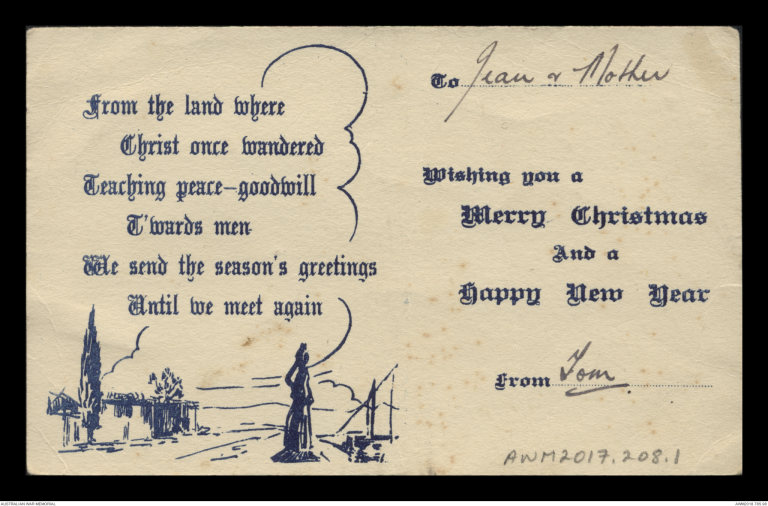 From the land where
Christ once wandered
Teaching peace-goodwill
T'wards men
We send the season's greetings
Until we meet again
To Jean & Mother
Wishing you a
Merry Christmas
And a
Happy New Year
From Tom
AWM2017.208.1
AUSTRALIAN WAR MEMORIAL